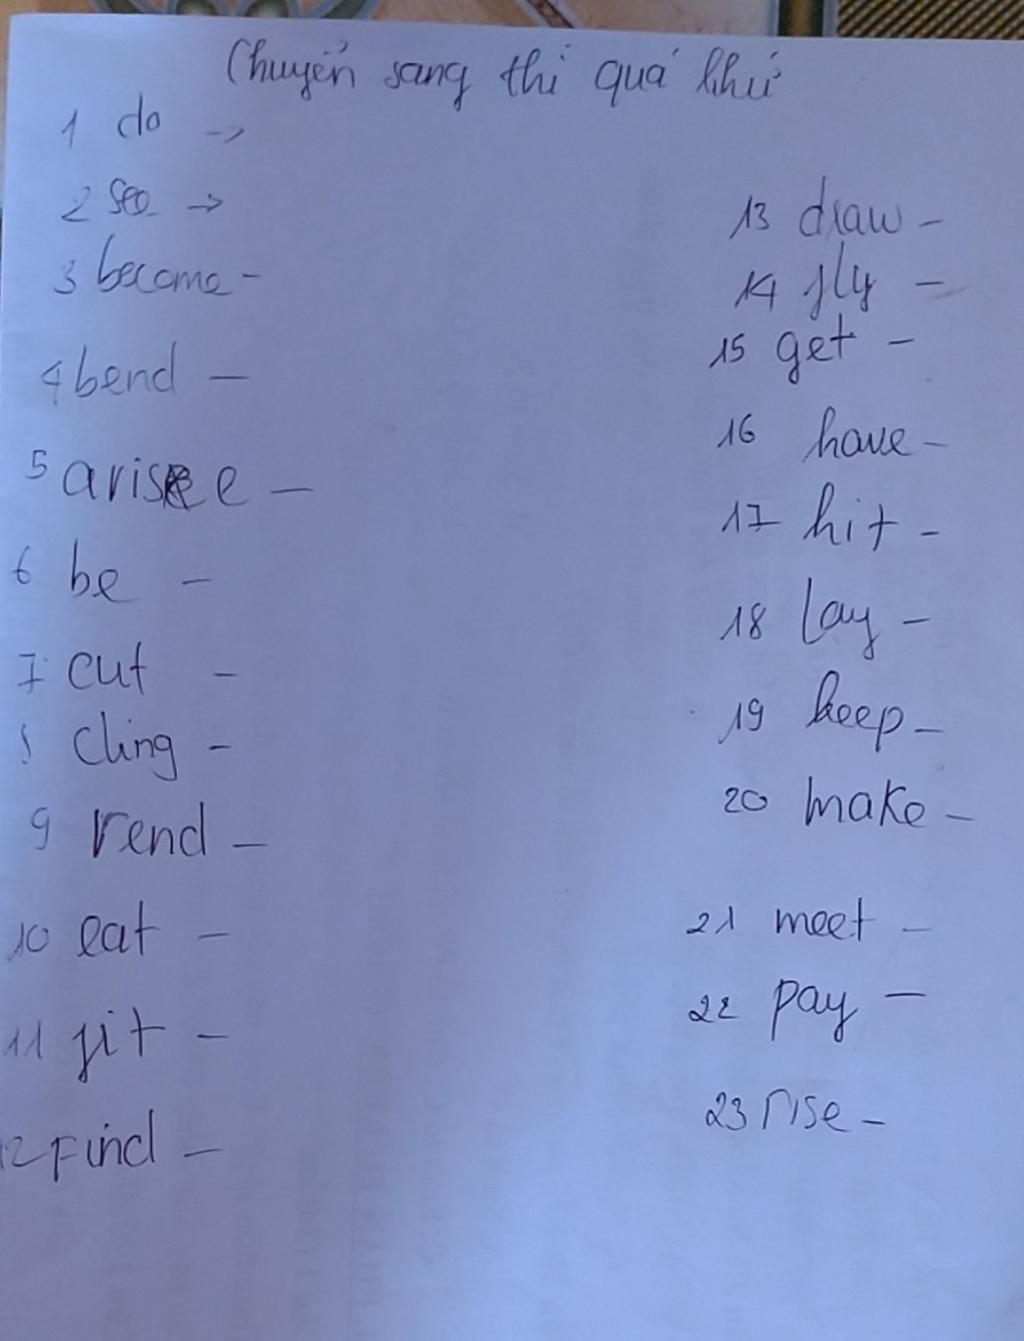 Chuyển sang thì quá khứ
1 do ->
2 see ->
3 become -
4 bend -
5 arise -
6 be -
7 cut -
8 cling -
9 rend -
10 eat -
11 fit -
12 Find -
13 draw -
14 fly -
15 get -
16 have -
17 hit -
18 lay -
19 keep -
20 make -
21 meet -
22 pay -
23 rise -